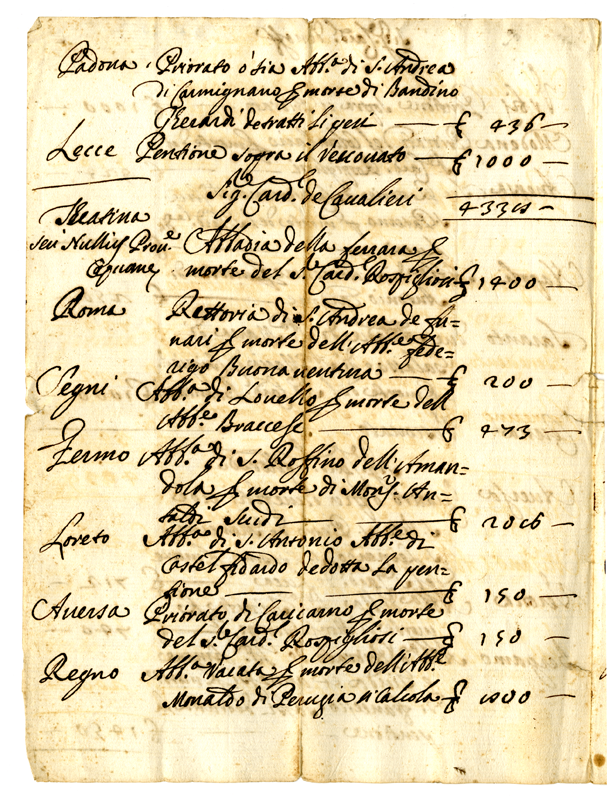 Padona Priorato ò sia Abb.a di S. Andrea
di Carmignano p morte di Bandino
Riccardi detratti li pesi — £ 436 —
Lecce Pensione sopra il Vescovato — £ 1000 —
Sig.r Card.l de Cavalieri
Theatina
seu Nullius Prou.e Abbadia della ferrara p
Capuane morte del S.r Card. Rospigliosi £ 1400 —
Roma Rettoria di S. Andrea de fu=
nari p morte dell'Abb.e fede=
rigo Buonaventura — £ 200 —
Segni Abb.a di Lovello p morte dell
Abb.e Braccese — £ 473 —
Fermo Abb.a di S. Roffino dell'Aman=
dola p morte di Mons.r An=
— £
Loreto Abb.a di S. Antonio Abb.e di
Castel fidardo dedotta la pen=
sione — £ 150 —
Auersa Priorato di morte
del S.r Card. Rospigliosi — £ 150 —
Regno Abb.a Vacata p morte dell'Abb.e
Monaldo di Perugia si calcola £